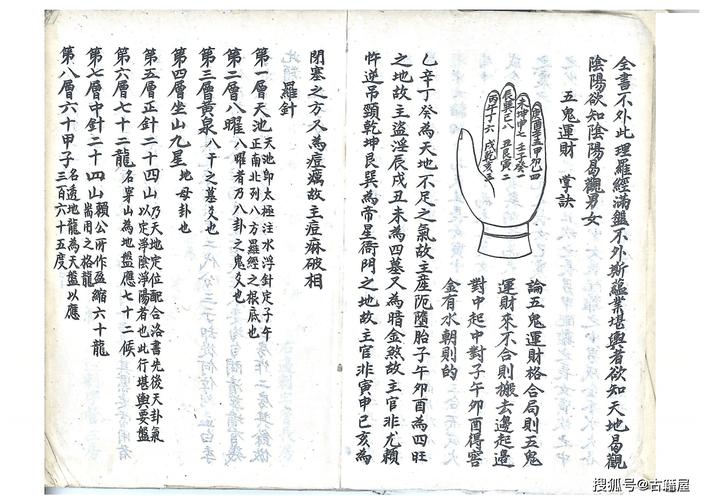 全書不外此理羅經滿盤不外斯蘊業堪輿者欲知天地曷觀
陰陽欲知陰陽曷觀男女
五鬼運財 掌訣
庚酉辛五甲卯四
未坤申七壬子癸一
辰巽巳八丑艮寅二
丙午丁六戌乾亥三
論五鬼運財格合局則五鬼
運財來不合則搬去邊起邊
對中起中對子午卯酉得容
金有水朝則的
乙辛丁癸為天地不足之氣故主產阨墮胎子午卯酉為四旺
之地故主盜淫辰戌丑未為四墓又為暗金煞故主官非尤賴
忤逆吊頸乾坤艮巽為帝星衙門之地故主官非寅申巳亥為
閉塞之方又為痘癘故主痘痳破相
羅針
第一層天池 天池即太極注水浮針定子午
正南北列八方羅經之根底也
第二層八曜 八曜者乃八卦之鬼爻也
第三層黃泉 八干之墓爻也
第四層坐山九星 地母卦也
第五層正針二十四山 乃天地定位配合洛書先後天卦氣
以定淨陰淨陽者也此行堪輿要盤
第六層七十二龍 名穿山為地盤應七十二候
第七層中針二十四山 賴公所作盈縮六十龍
耑用之格龍
第八層六十甲子 名透地龍為天盤以應
三百六十五度
搜狐号@古籍屋